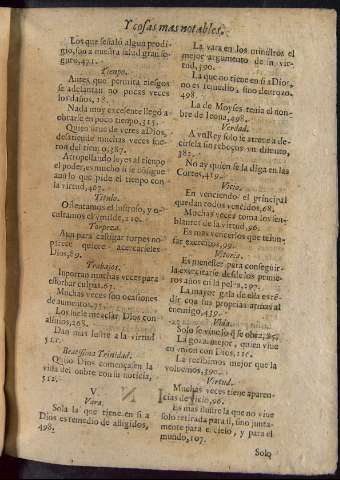 Y cosas mas notables.
Los que señaló algun prodigio, son a nuestra salud gran seguro, 431.
Tiempo.
Antes que permita riesgos
se adelantan no pocas veces
los daños, 18.
Nada muy excelente llegó a
obrarse en poco tiempo, 315.
Quien huye de veres a Dios,
desatiende muchas veces
Atropellando leyes al tiempo
el poder, es mucho si se consigue
aun lo que pide el tiempo con
la virtud, 467.
Titulo.
Ostentamos el lustroso, y ocultamos el humilde, 110.
Torpeza.
Aun para castigar torpes no
parece quiere acercarseles
Dios, 89.
Trabajos.
Importan muchas veces para
estorbar culpas, 67.
Muchas veces son ocasiones
de aumento, 75.
Los suele mezclar Dios con
alivios, 268.
Dan mas lustre a la virtud
511.
Beatissima Trinidad.
Quiso Dios començassen la
vida del onbre con su noticia,
512.
V
Vara.
Sola la que tiene en si a
Dios es remedio de afligidos,
498.
La vara en los ministros el
mejor argumento de su virtud, 390.
La que no tiene en si a Dios,
no es remedio, sino destrozo,
498
La de Moyses tenia el nombre de Ieoua, 498.
Verdad.
A un Rey solo se atreve a decirsela sin reboços un difunto,
382.
No ay quien se la diga en las
Cortes, 419.
Vicio.
En venciendo el principal
quedan todos vencidos, 68.
Muchas veces toma los semblantes de la virtud, 96.
Es mas vencerlos que triunfar exercitos, 99.
Vitoria.
Es menester para conseguirla exercitarse desde los primeros años en la pelea, 297.
La mayor gala de ella es rendir con sus propias armas al
enemigo, 439.
Vida.
Solo se vive lo que se obra,
La goza mejor, quien vive
en vnion con Dios, 116.
La recibimos mejor que la
volvemos, 390.
Virtud.
Muchas veces tiene apariencias de vicio, 96.
Es mas ilustre la que no vive
solo retirada para si, sino juntamente para el cielo, y para el
mundo, 107.
Solo